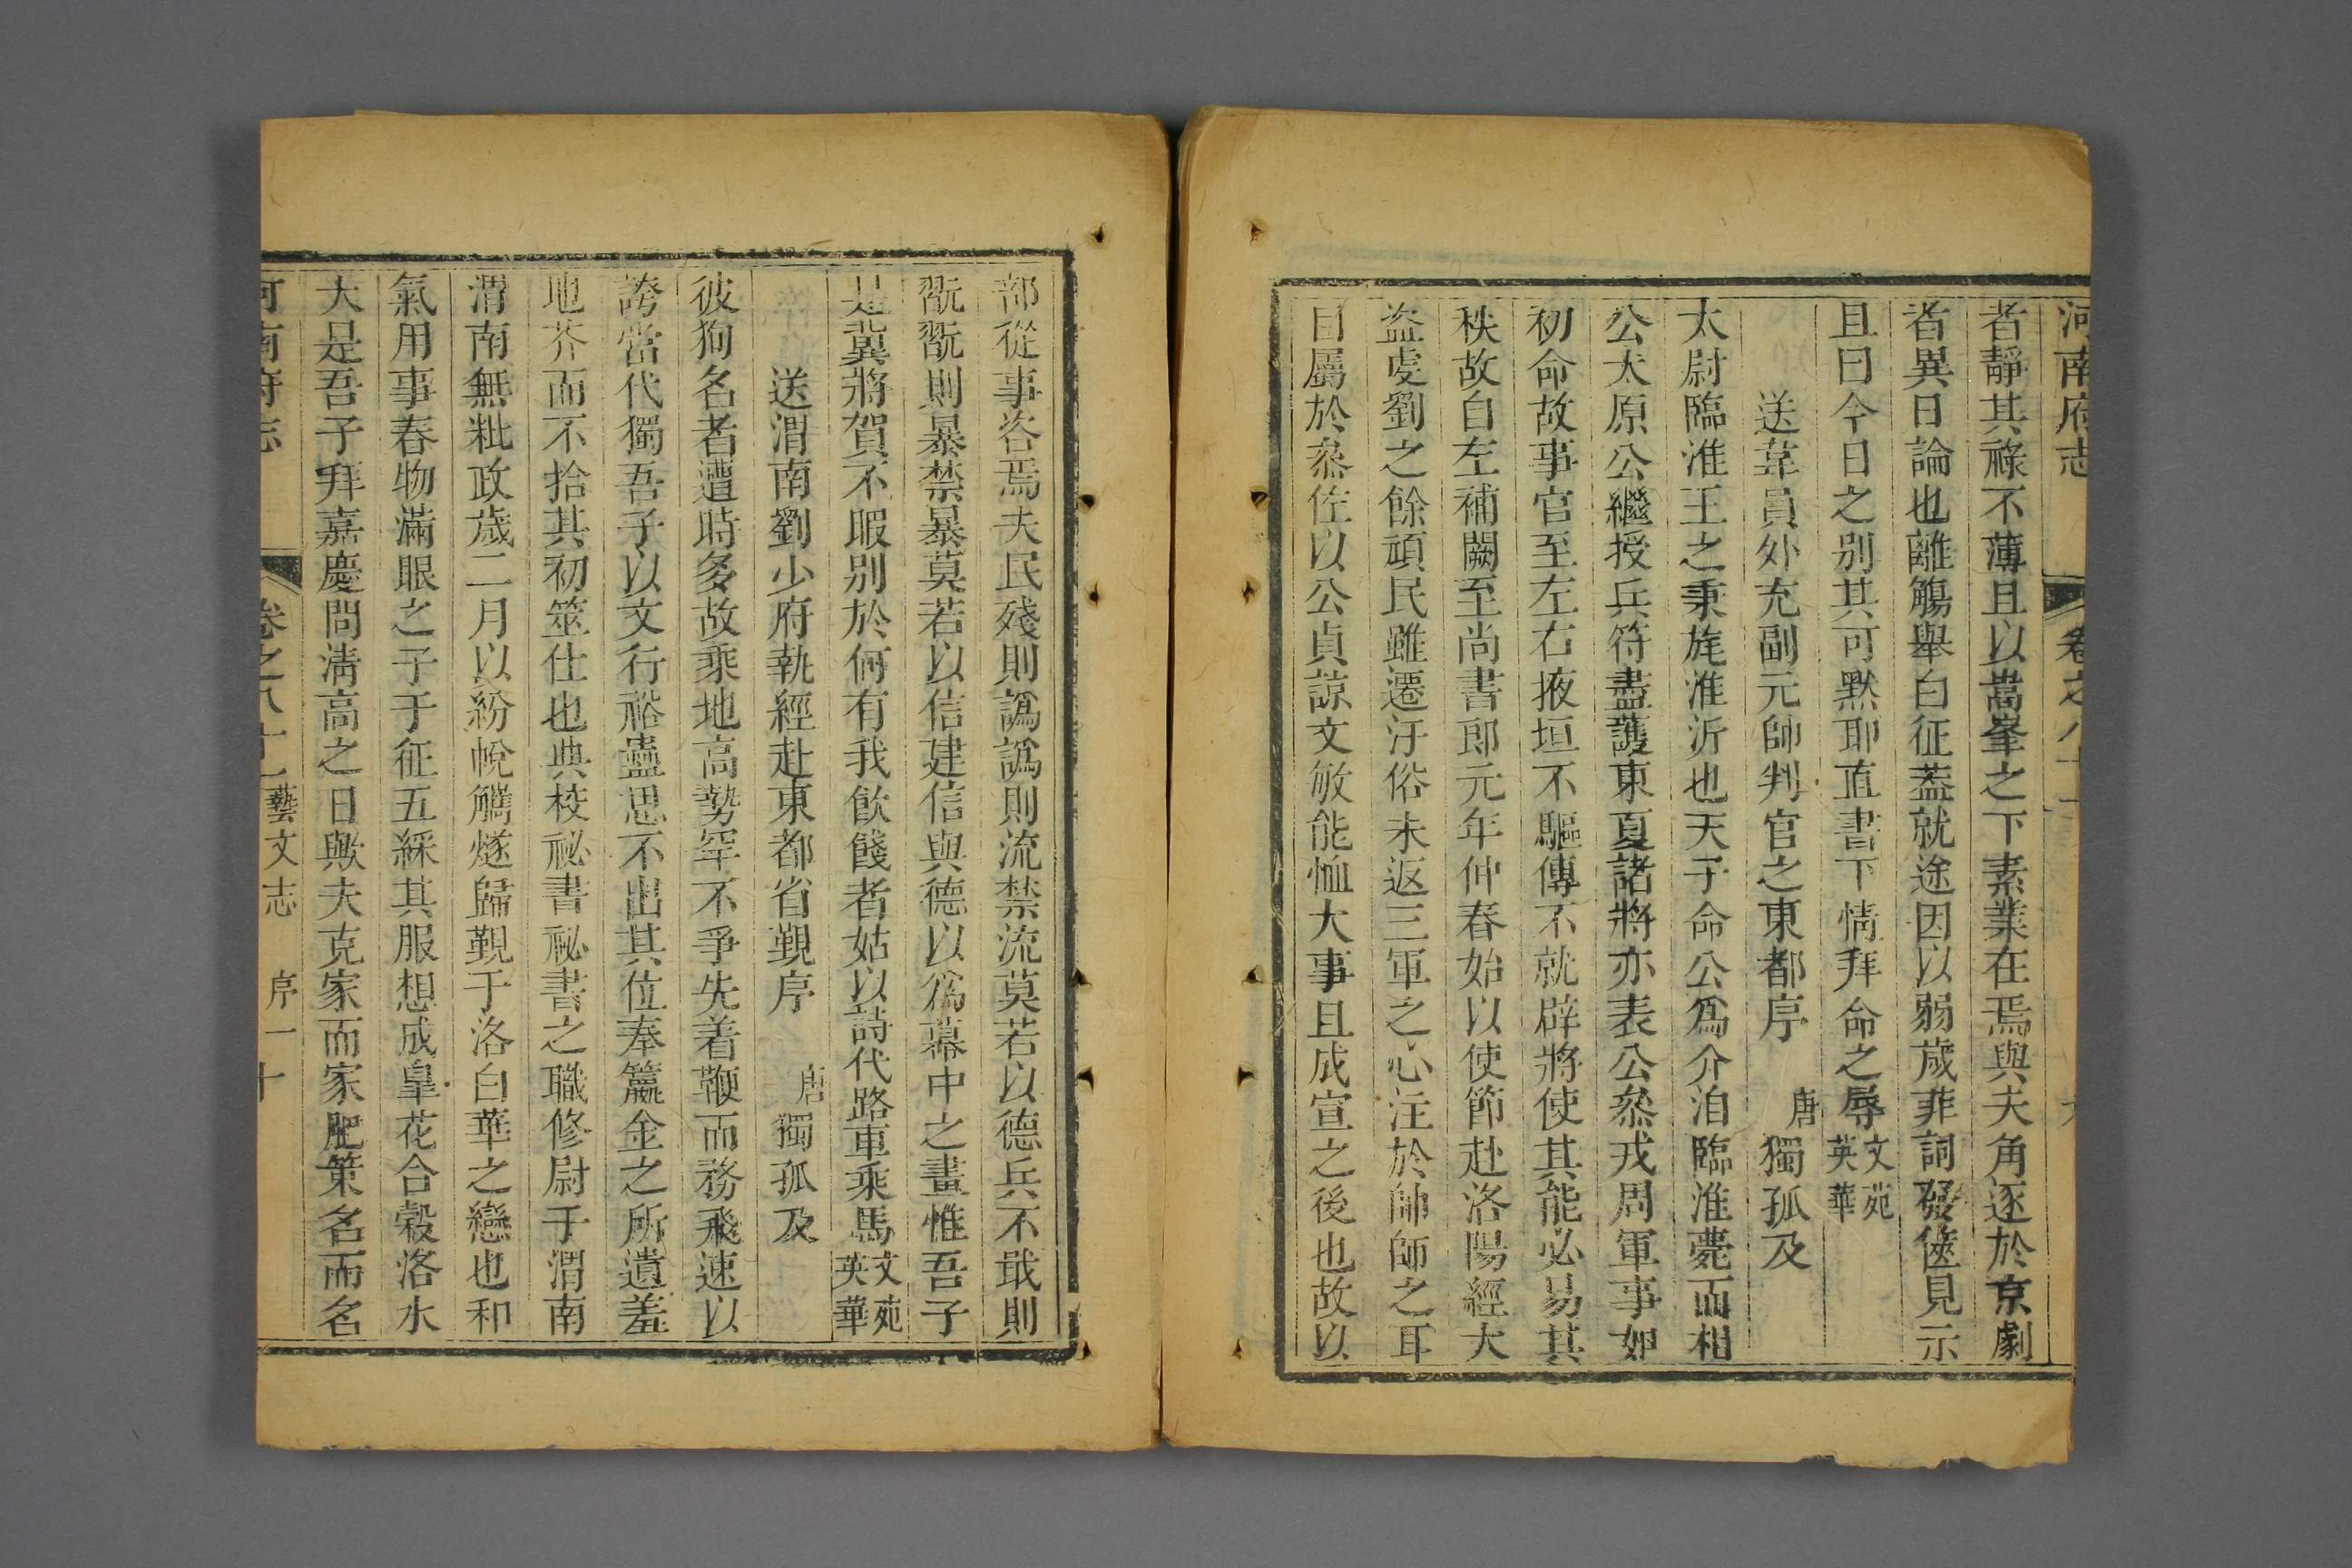 河南府志 卷之八十
者靜其祿不薄且以嵩峯之下素業在焉與夫角逐於京劇
者異日論也離觴舉白征蓋就途因以弱歲菲詞發篋見示
且曰今日之別其可默耶直書下情拜命之辱文苑英華
送韋員外充副元帥判官之東都序 唐獨孤及
太尉臨淮王之秉旄淮沂也天子命公為介洎臨淮薨而相
公太原公繼授兵符盡護東夏諸將亦表公叅戎周軍事如
初命故事官至左右掖垣不驅傳不就辟將使其能必易其
秩故自左補闕至尚書郎元年仲春始以使節赴洛陽經大
盜虔劉之餘頑民雖遷汙俗未返三軍之心注於帥師之耳
目屬於叅佐以公貞諒文敏能恤大事且成宣之後也故以
部從事咨焉夫民殘則譌譌則流禁流莫若以德兵不戢則
翫翫則暴禁暴莫若以信建信與德以為幕中之畫惟吾子
是冀將賀不暇別於何有我飲餞者姑以詩代路車乘馬文苑英華
送渭南劉少府執經赴東都省覲序 唐獨孤及
彼狥名者遭時多故乘地高勢罕不爭先着鞭而務飛速以
誇當代獨吾子以文行裕蠱思不出其位奉籯金之所遺羞
地芥而不拾其初筮仕也典校祕書祕書之職修尉于渭南
渭南無粃政歲二月以紛帨觿燧歸覲于洛白華之戀也和
氣用事春物滿眼之子于征五綵其服想成皐花合穀洛水
大是吾子拜嘉慶問清高之日歟夫克家而家肥策名而名
河南府志 卷之八十 藝文志 序一 十